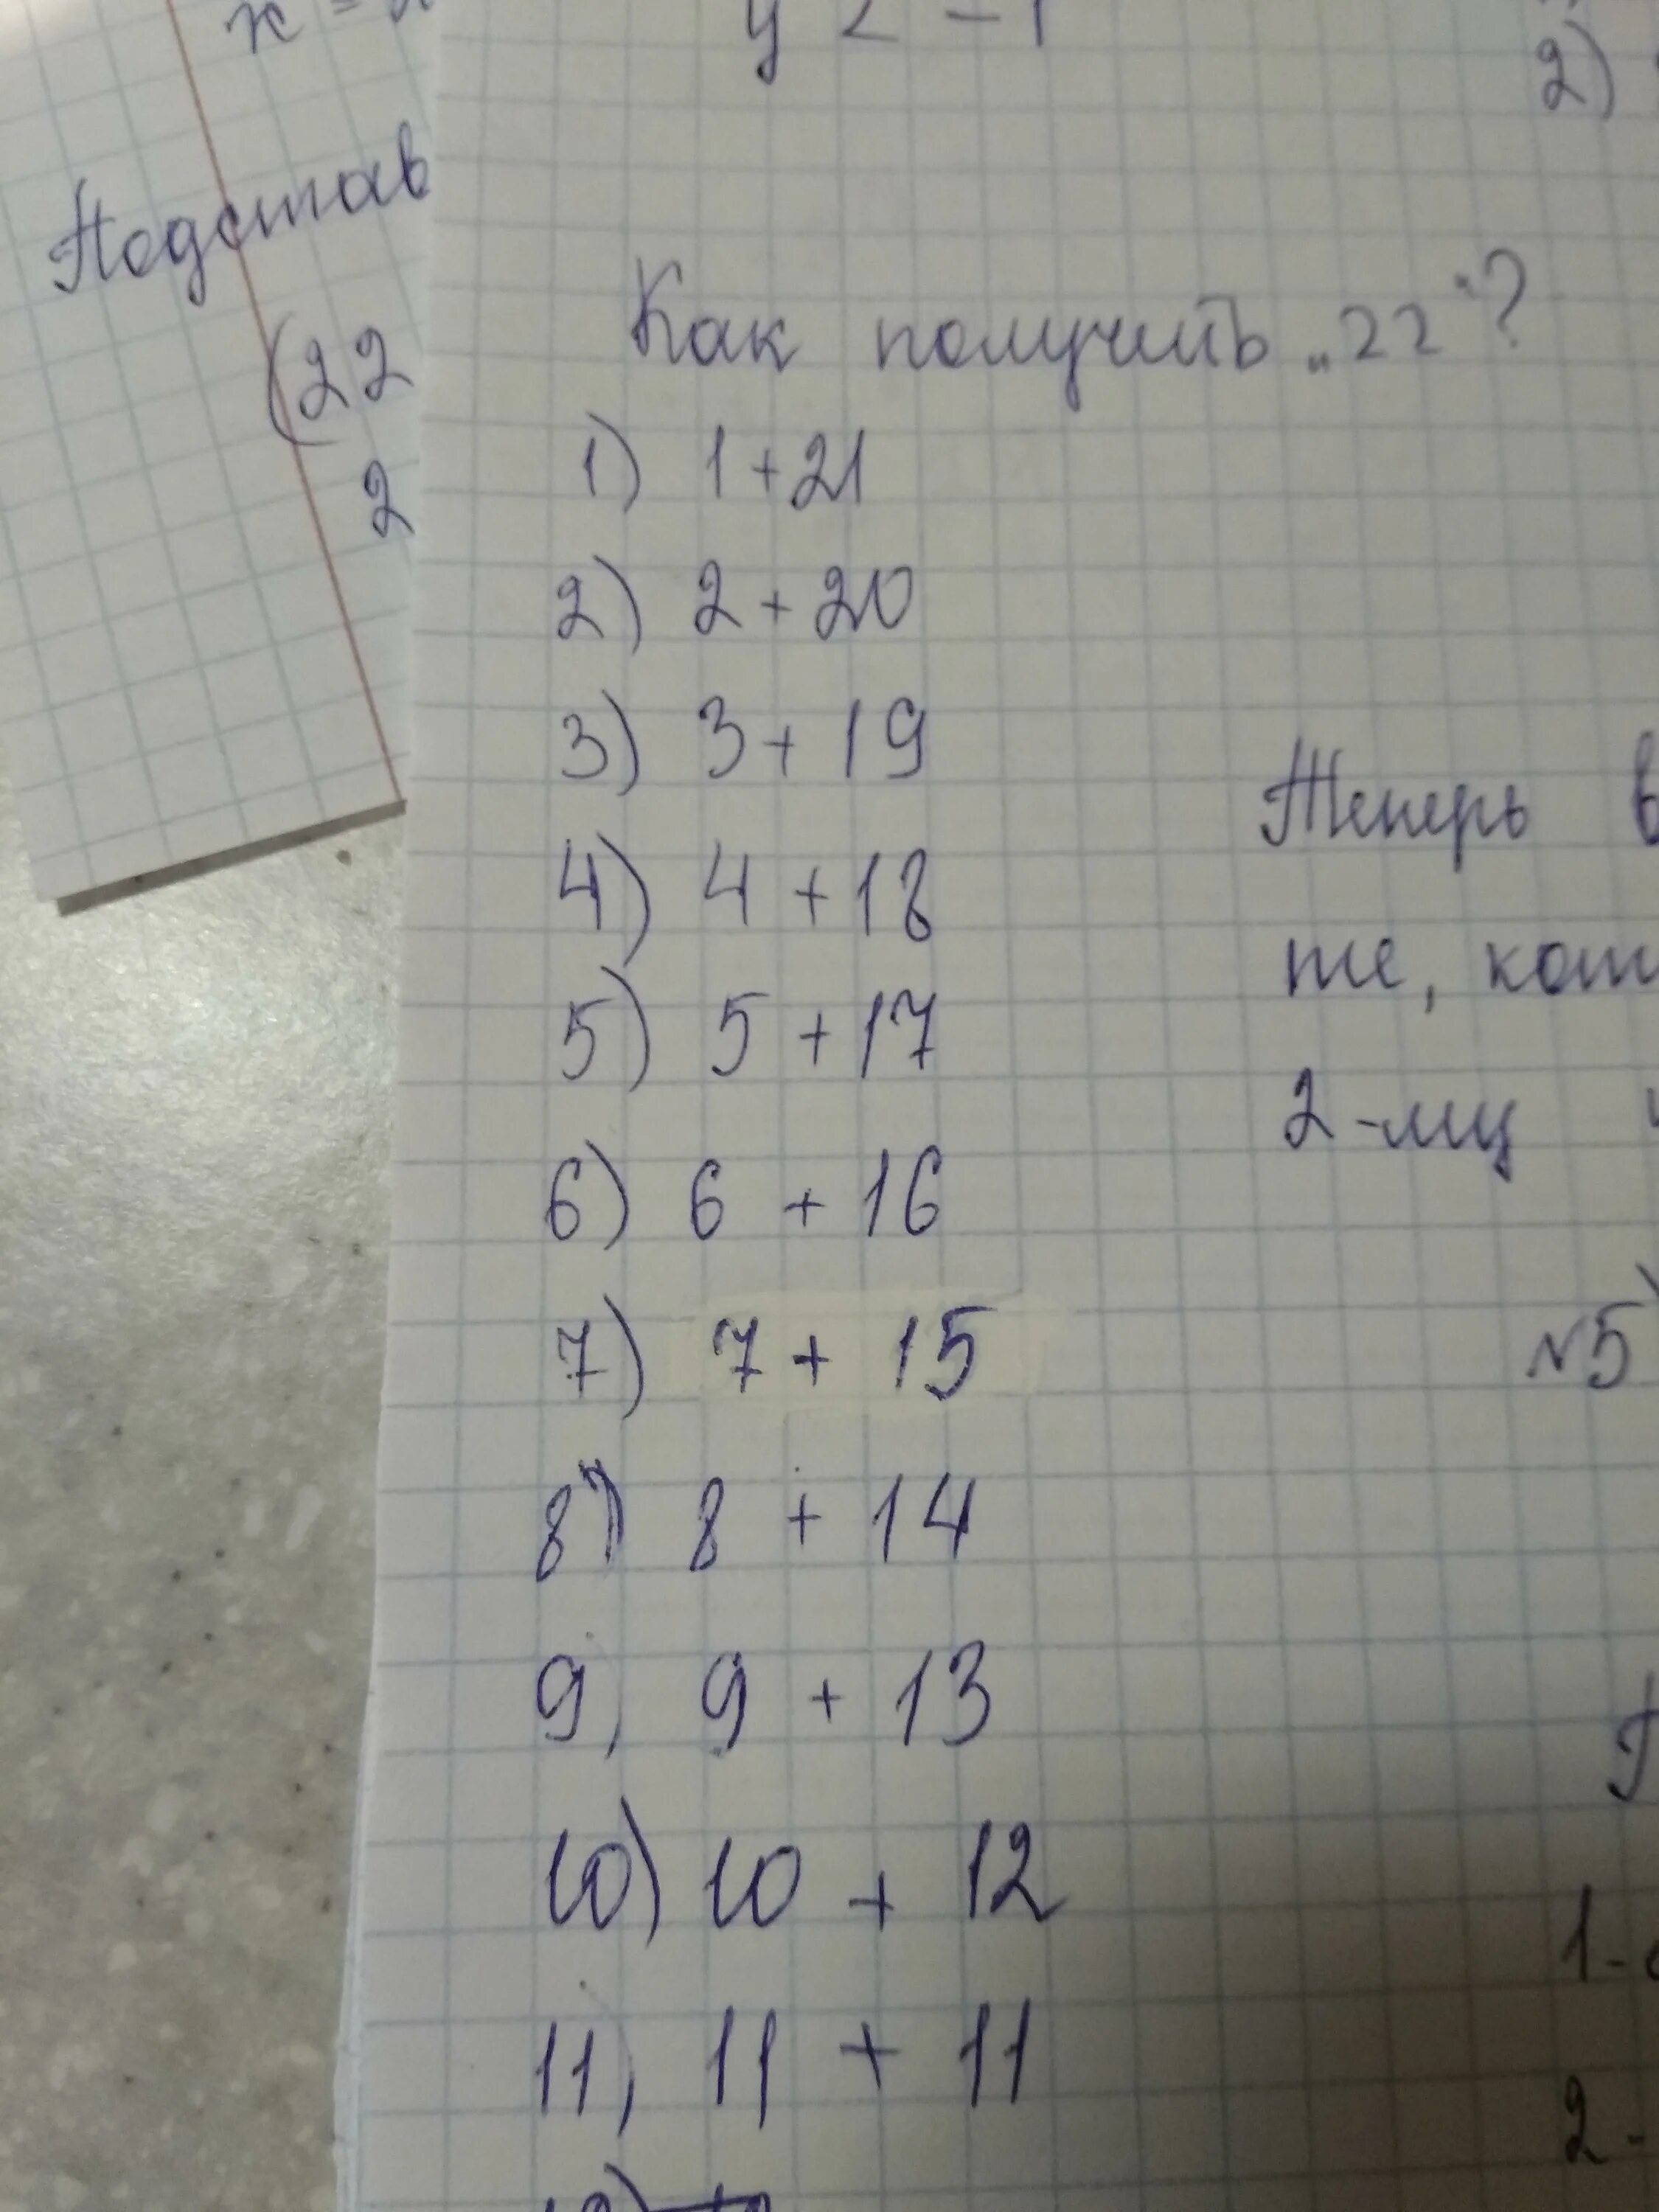 y < -1
2)
Подстав
(22
2
Как получить „22"?
1) 1+21
2) 2+20
3) 3+19
4) 4+18
5) 5+17
6) 6+16
7) 7+15
8) 8+14
9) 9+13
10) 10+12
11) 11+11
Теперь в
те, кот
2-мц
№5)
1-
2-